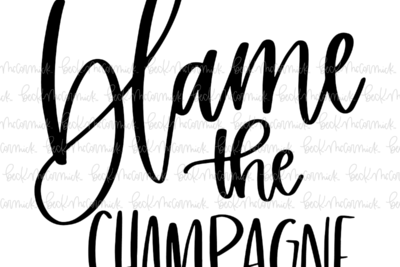 blame
the
CHAMPAGNE